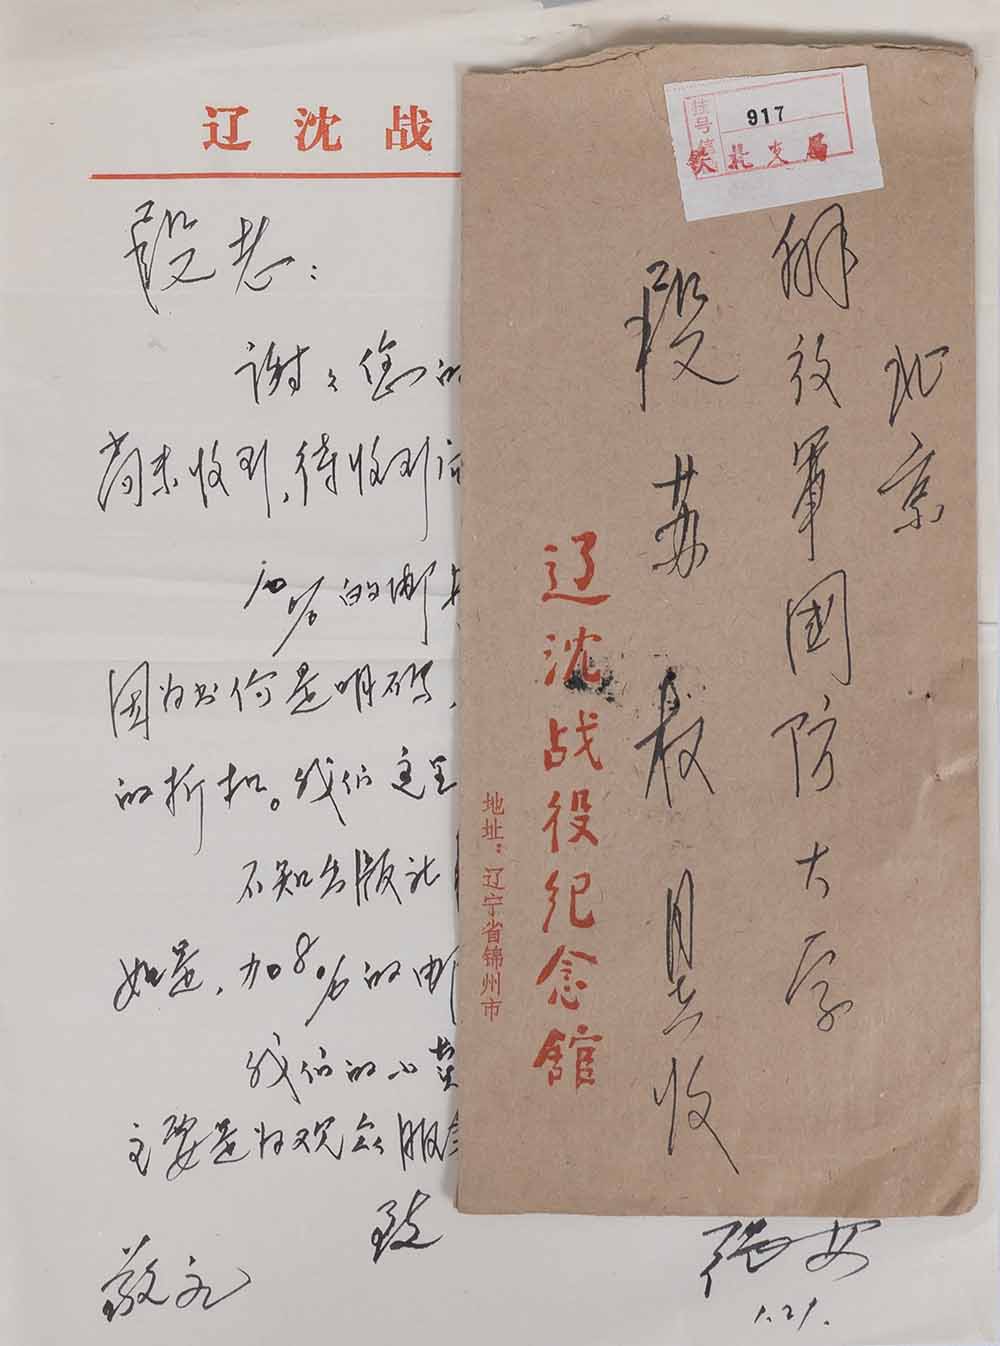 辽沈战
段老：
谢々您的
尚未收到，待收到
10%的邮
因为书价是明码，
的折扣。我们这里
不知出版社
如是，加8%的邮
我们的小黄
主要是为观众服务
致
敬礼
1.21.
挂号
917
北京
解放军国防大学
段苏权同志收
辽沈战役纪念馆
地址：辽宁省锦州市